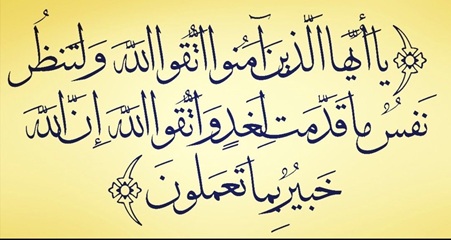 ﴿يا أيها الذين آمنوا اتقوا الله ولتنظر
نفس ما قدمت لغد واتقوا الله إن الله
خبير بما تعملون﴾